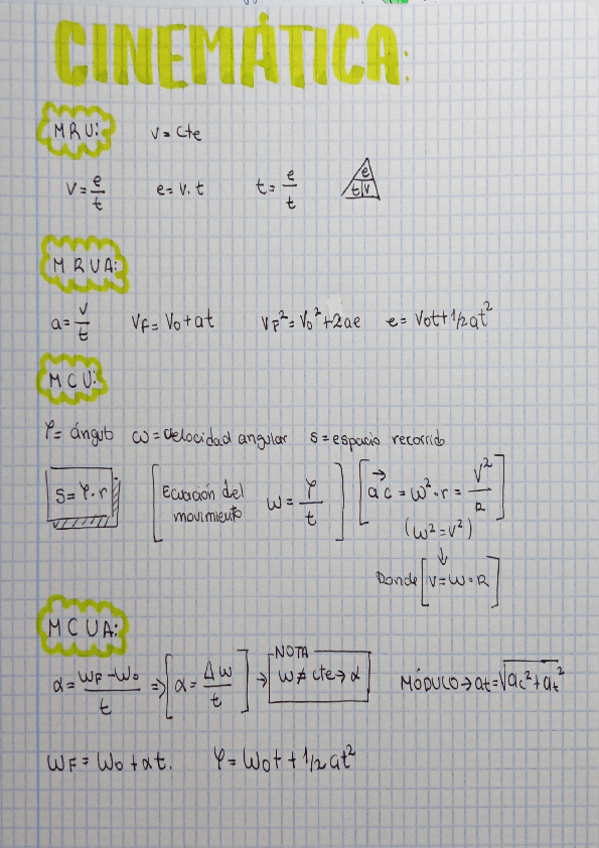 CINEMÁTICA:
MRU: v = cte
v = e/t e = v.t t = e/t e t v
MRUA:
a = v/t VF = V0 + at VF² = V0² + 2ae e = V0t + 1/2 at²
MCU:
φ = ángulo ω = velocidad angular s = espacio recorrido
s = φ·r [Ecuación del movimiento ω = φ/t] [ac = ω²·r = V²/R]
(ω² = v²)
↓
Donde [v = ω·R]
MCUA:
α = (ωF - ω0)/t ⇒ [α = Δω/t] → NOTA ω ≠ cte → α MÓDULO → at = √ac² + at²
ωF = ω0 + αt. φ = ω0t + 1/2 at²